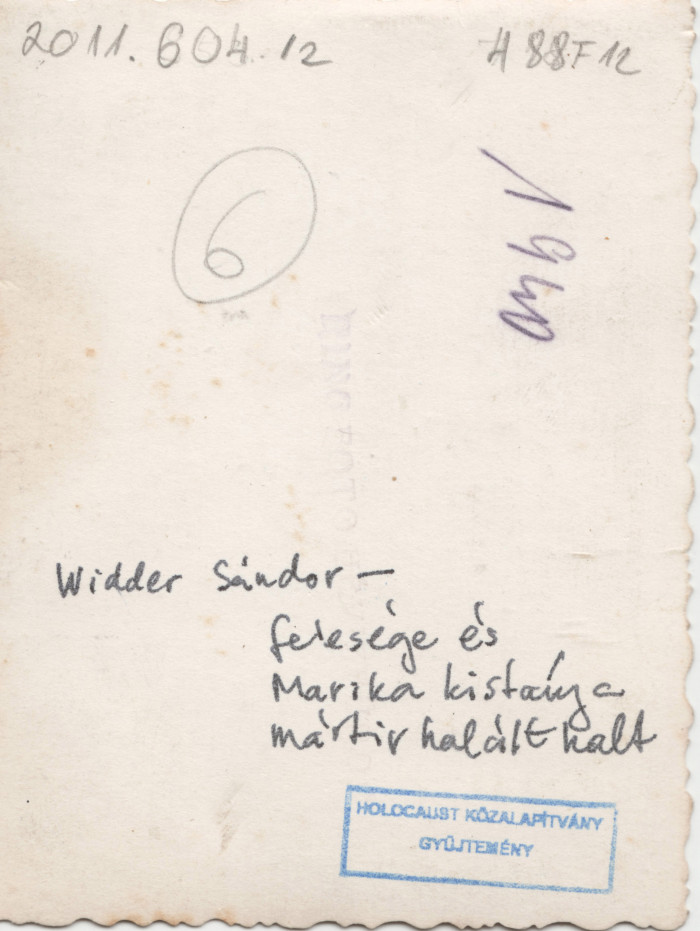 2011.604.12
H 88F12
6
1940
Widder Sándor —
felesége és
Marika kislánya
mártirhalált halt
HOLOCAUST KÖZALAPÍTVÁNY
GYŰJTEMÉNY